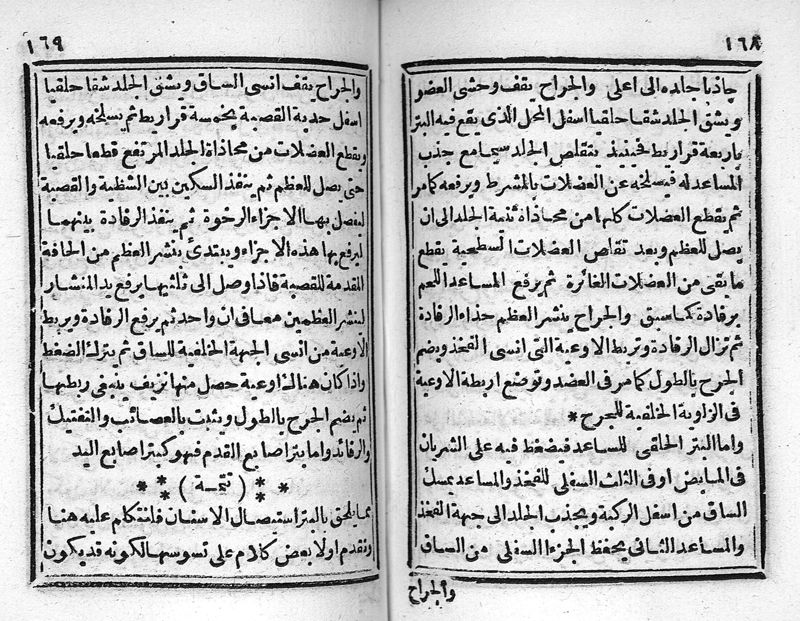 ١٦٨
جاذبا جلده الى اعلى والجراح يقف وحشى العضو
ويشق الجلد شقا حلقيا اسفل المحل الذى يقع فيه البتر
باربعة قراريط فحينئذ يتقلص الجلد سيما مع جذب
المساعد له فيسلخه عن العضلات بالمشرط ويرفعه كمامر
ثم يقطع العضلات كلها من محاذاة ثنية الجلد الى ان
يصل للعظم وبعد تقلص العضلات السطحية يقطع
ما بقى من العضلات الغائرة ثم يرفع المساعد اللحم
برفادة كما سبق والجراح ينشر العظم حذاء الرفادة
ثم تزال الرفادة وتربط الاوعية التى انسى الفخذ ويضم
الجرح بالطول كمامر فى العضد وتوضع اربطة الاوعية
فى الزاوية الخلفية للجرح *
واما البتر الحلقى للساعد فيضغط فيه على الشريان
فى المابض او فى الثلث السفلى للفخذ والمساعد يمسك
الساق من اسفل الركبة ويجذب الجلد الى جهة الفخذ
والمساعد الثانى يحفظ الجزء السفلى من الساق
والجراح
١٦٩
والجراح يقف انسى الساق ويشق الجلد شقا حلقيا
اسفل حدبة القصبة بخمسة قراريط ثم يسلخه ويرفعه
ويقطع العضلات من محاذاة الجلد المرتفع قطعا حلقيا
حتى يصل للعظم ثم ينفذ السكين بين الشظية والقصبة
ليفصل بها الاجزاء الرخوة ثم ينفذ الرفادة بينهما
ليرفع بها هذه الاجزاء ويبتدئ بنشر العظم من الحافة
المقدمة للقصبة فاذا وصل الى ثلثيها يرفع يد المنشار
لينشر العظمين معا فى ان واحد ثم يرفع الرفادة ويربط
الاوعية من انسى الجهة الخلفية للساق ثم يترك الضغط
واذا كان هناك اوعية حصل منها نزيف ينبه فى ربطها
ثم يضم الجرح بالطول ويثبت بالعصائب والتفتيك
والرفائد واما بتر اصابع القدم فهو كبتر اصابع اليد
* * * ( تتمة ) * * *
مما يلحق بالبتر استئصال الاسنان فلنتكلم عليه هنا
ونقدم اولا بعض كلام على تسوسها لكونه قد يكون